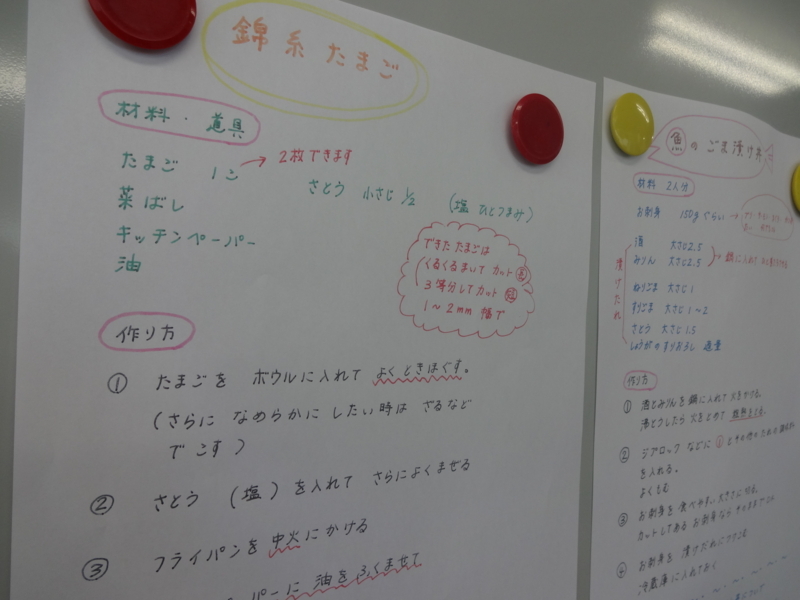 錦糸たまご
材料・道具
たまご 1こ → 2枚できます
さとう 小さじ1/2 (塩 ひとつまみ)
菜ばし
キッチンペーパー
油
できたたまごは
くるくるまいてカット
3等分してカット
1～2mm 幅で
作り方
① たまごを ボウルに入れて よくときほぐす。
(さらに なめらかに したい時は ざるなど
で こす)
② さとう (塩) を入れて さらによくまぜる
③ フライパンを 中火にかける
ペーパーに 油をふくませて
魚のごま漬け丼
材料 2人分
お刺身 150gぐらい →
漬けだれ
酒 大さじ2.5
みりん 大さじ2.5
鍋に入れて
ねりごま 大さじ1
すりごま 大さじ1～2
さとう 大さじ1.5
しょうがのすりおろし 適量
作り方
① 酒とみりんを鍋に入れて火をかける。
沸とうしたら 火をとめて
② ジップロック などに ①とその他のための
を入れる。
よくもむ
③ お刺身を 食べやすい大きさに切る。
カットしてある お刺身なら そのままでOK
④ お刺身を 漬けだれにつけこむ
冷蔵庫に入れておく